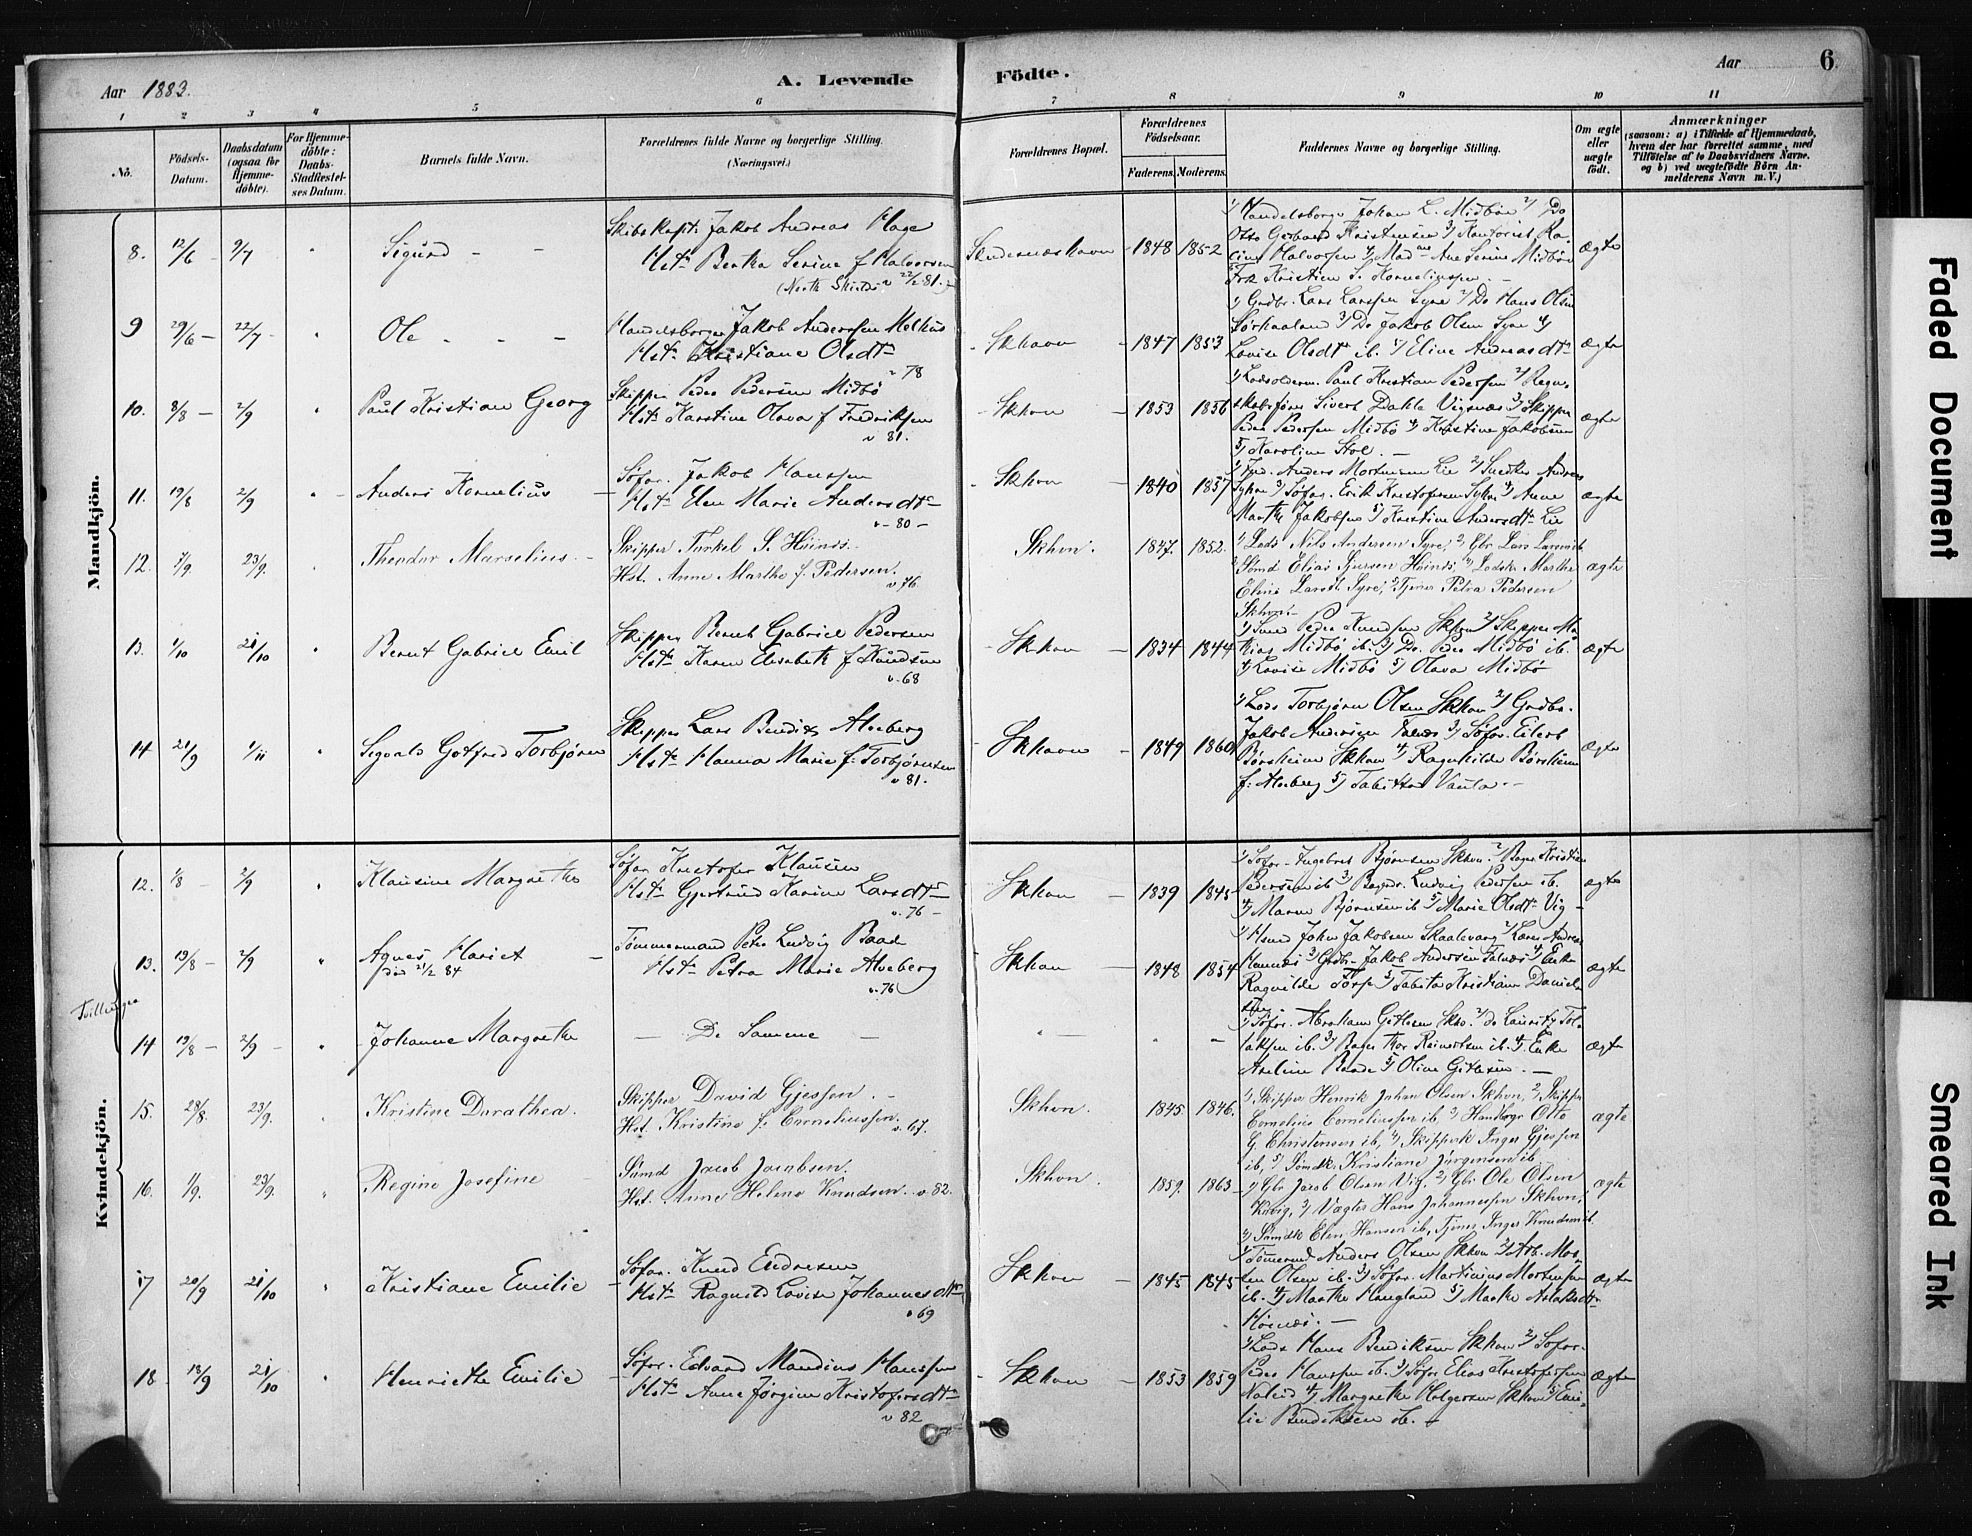 Aar 1883.
A. Levende Födte.
Aar
6.
1 2 3 4 5 6 7 8 9 10 11
No.
Födsels-Datum.
Daabsdatum (ogsaa for Hjemme-döbte).
For Hjemme-döbte: Daabs-Stadfæstel-ses Datum.
Barnets fulde Navn.
Forældrenes fulde Navne og borgerlige Stilling. (Næringsvei.)
Forældrenes Bopæl.
Forældrenes Födselsaar.
Faderens. Moderens.
Faddernes Navne og borgerlige Stilling.
Om ægte eller uægte födt.
Anmærkninger
(saasom: a) i Tilfælde af Hjemmedaab,
hvem der har forrettet samme, med
Tilföielse af to Daabsvidners Navne.
og b) ved uægtefödte Börn An-
melderens Navn m. V.)
Mandkjön.
8. 12/6 9/7 Sigurd
Skibskapt. Jakob Andreas Hage
Hst. Bertha Serine f Halvorsen
(North Shields v 22/2 81.)
Skudesneshavn 1848 1852
1/ Handelsborger Johan L. Midbøe 2/ Do
Otto Gerhard Kristensen 3/
Halvorsen 4/ Mad Ane Serine Midbøe
Frk Kristine S. Korneliussen.
ægte
9 29/6 22/7 Ole
Handelsborger Jakob Anderssen Melhus
Hst. Kristiane Olsdtr
v 78
Skhavn 1847 1853
1/ Grdbr. Lars Larssen Syre 2/ Do Hans Olsen
Sørhaaland 3/ Do Jakob Olsen Syre 4/
Lovise Olsdtr ib. 5/ Eline Andreasdtr
ægte
10. 8/8 2/9 Paul Kristian Georg
Skipper Peder Pedersen Midbö
Hst. Karstine Olava f Fredriksen
v 81.
Skhvn 1853 1856
1/ Lodsolderm. Paul Kristian Pedersen 2/ Regn-
skabsfører Sivert Dahle Vigsnæs 3/ Skipper
Peder Pedersen Midbö 4/ Kristine Jakobsen
5/ Karoline Stol.
ægte
11. 19/8 2/9 Anders Kornelius
Søfar. Jakob Hanssen
Hst. Elen Marie Andersdtr
v 80
Skhvn 1840 1857
Anders Mortensen Lie 2/ Snedker Andreas
3/ Søfar. Erik Kristofersen 4/ Anne
Marthe Jakobsen 5/ Kristine Andersdtr Lie
ægte
12. 7/9. 23/9. Theodor Marselius
Skipper Torkel S. Hinds.
Hst. Anne Marthe f. Pedersen.
v 76.
Skhvn. 1847. 1852.
1/ Lods Nils Andersen Syre, 2/ Gbr. Lars Larsen ib
3/ Sømd Elias Sjursen 4/ Lodsk. Marthe
Eline Larsdt Syre, 5/ Tjener Petra Pedersen
Skhvn.
ægte
13. 1/10 21/10 Bernt Gabriel Emil
Skipper Bernt Gabriel Pedersen
Hst. Karen Elisabeth f Knudsen
v. 68
Skhavn 1834 1844
1/ Smed Peder Knudsen Skhvn 2/ Skipper Ma-
thias Midbö ib. 3/ Do. Peder Midbö ib.
4/ Lovise Midbö 5/ Olava Midbö
ægte
14 21/9 1/11 Sigvald Gotfred Torbjörn
Skipper Lars Bendix Aleberg
Hst. Hanna Marie f: Torbjørnsen
v 81.
Skhavn 1849 1860
1/ Lods Torbjørn Olsen Skhvn 2/ Grdbr.
Jakob Andersen Falnæs 3/ Søfar. Eilert
Børsheim Skhvn 4/ Ragnhilde Børsheim
f: Aleberg 5/ Tabitha
ægte
Kvindekjön.
12. 1/8 2/9 Klausine Margrethe
Søfar. Kristofer Klausen
Hst. Gjertrud Karine Larsdtr
v. 76
Skhvn 1839 1845
1/ Søfar. Ingebret Bjørnsen Skhvn. 2/ Bager Kristian
Pedersen ib 3/ Ludvig Pedersen ib.
4/ Maren Bjørnsen ib 5/ Marie Olsdtr Vig
ægte
Tvillinger
13. 19/8 2/9 Agnes Hariet
død 21/2 84
Tömmermand Peter Ludvig Baade
Hst. Petra Marie Aleberg
v. 76
Skhavn 1848 1854
1/ John Jakobsen Skaalevang 2/ Lærer Andreas
3/ Grdbr. Jakob Andersen Falnæs 4/ Enke
Ragnilde 5/ Tabita Kristiane Daniel-
sen
ægte
14 19/8 2/9 Johanne Margrethe
De Samme
1/ Søfar. Abraham Gitlesen Skhvn. 2/ Do Lauritz Tol-
laksen ib. 3/ Bager Thor Reinertsen ib. 4/ Enke
Axeline Baade 5/ Oline Gitlesen.
ægte
15. 28/8. 23/9. Kristine Dorathea.
Skipper David Gjessen.
Hst. Kristine f. Corneliussen.
v. 67.
Skhvn. 1845. 1846.
1/ Skipper Henrik Johan Olsen Skhvn, 2/ Skipper
Cornelius Corneliussen ib, 3/ Handbgr. Otto
G Christensen ib, 4/ Skipperk Inger Gjessen
ib, 5/ Sømdk. Kristiane Jørgensen ib
ægte
16. 1/9. 23/9. Regine Josefine
Sömd Jacob Jacobsen.
Hst. Anne Helene Knudsen. v. 82.
Skhvn. 1859. 1863
1/ Gbr Jacob Olsen Vig, 2/ Gbr Ole Olsen
3/ Vægter Hans Johannessen Skhvn,
4/ Sømdk Elen Hansen ib, Tjener Inger Knudsen ib.
ægte
17 20/9 21/10 Kristiane Emilie
Söfar. Knud Endresen
Hst. Ragnild Lovise Johannesdtr
v 69
Skhvn 1845 1845
1/ Tömmermd Anders Olsen Skhvn 2/ Arb. Mor-
ten Olsen ib. 3/ Søfar. Martinius Mortensen
ib. 4/ Marthe Haugland 5/ Marthe Aslaksdtr
ægte
18 18/9 21/10 Henriethe Emilie
Söfar. Edvard Mandius Hanssen
Hst. Anne Jørgine Kristofersdtr
v 82
Skhvn 1853 1859
1/ Lods Hans Bendiksen Skhvn 2/ Søfar.
Peder Hanssen ib. 3/ Søfar Elias Kristofersen
4/ Margrethe Holgersen Skhvn 5/ Emi-
lie Bendiksen ib.
ægte
Faded Document
Smeared Ink